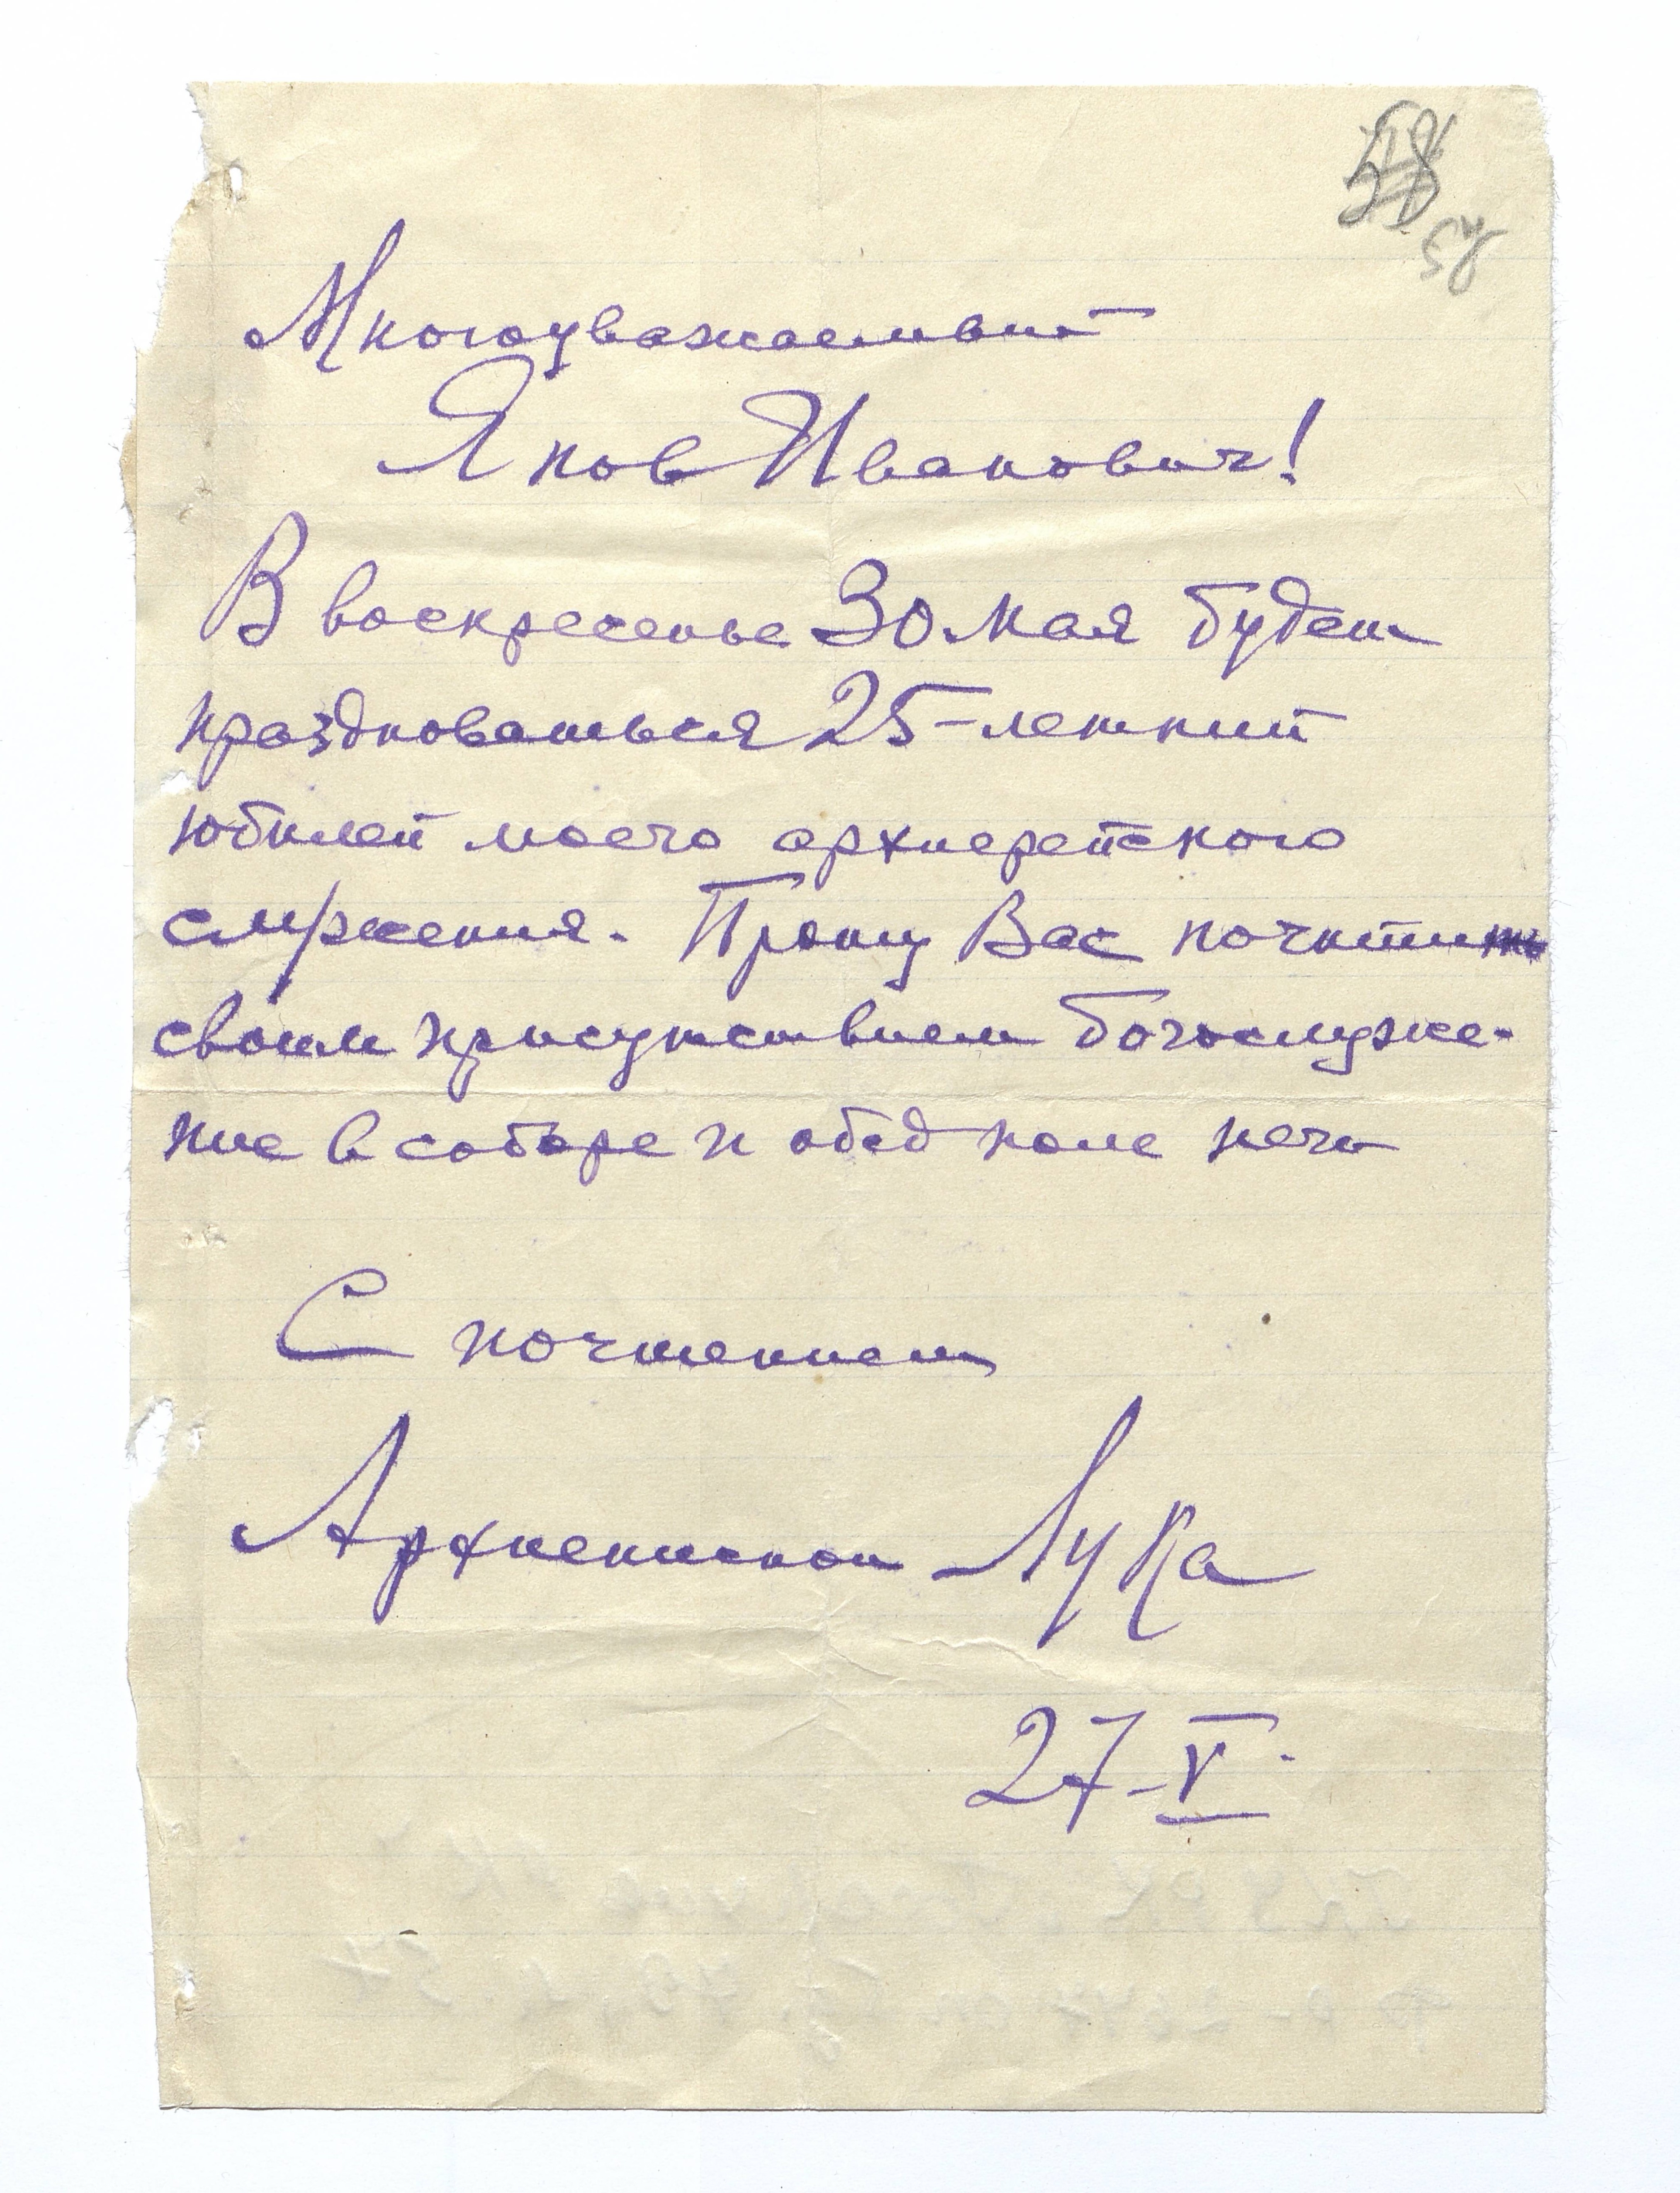 58
58
Многоуважаемый
Яков Иванович!
В воскресенье 30 мая будет
праздноваться 25-летний
юбилей моего архиерейского
служения. Прошу Вас почтить
своим присутствием богослуже-
ние в соборе и обед после него
С почтением
Архиепископ Лука
27-V.